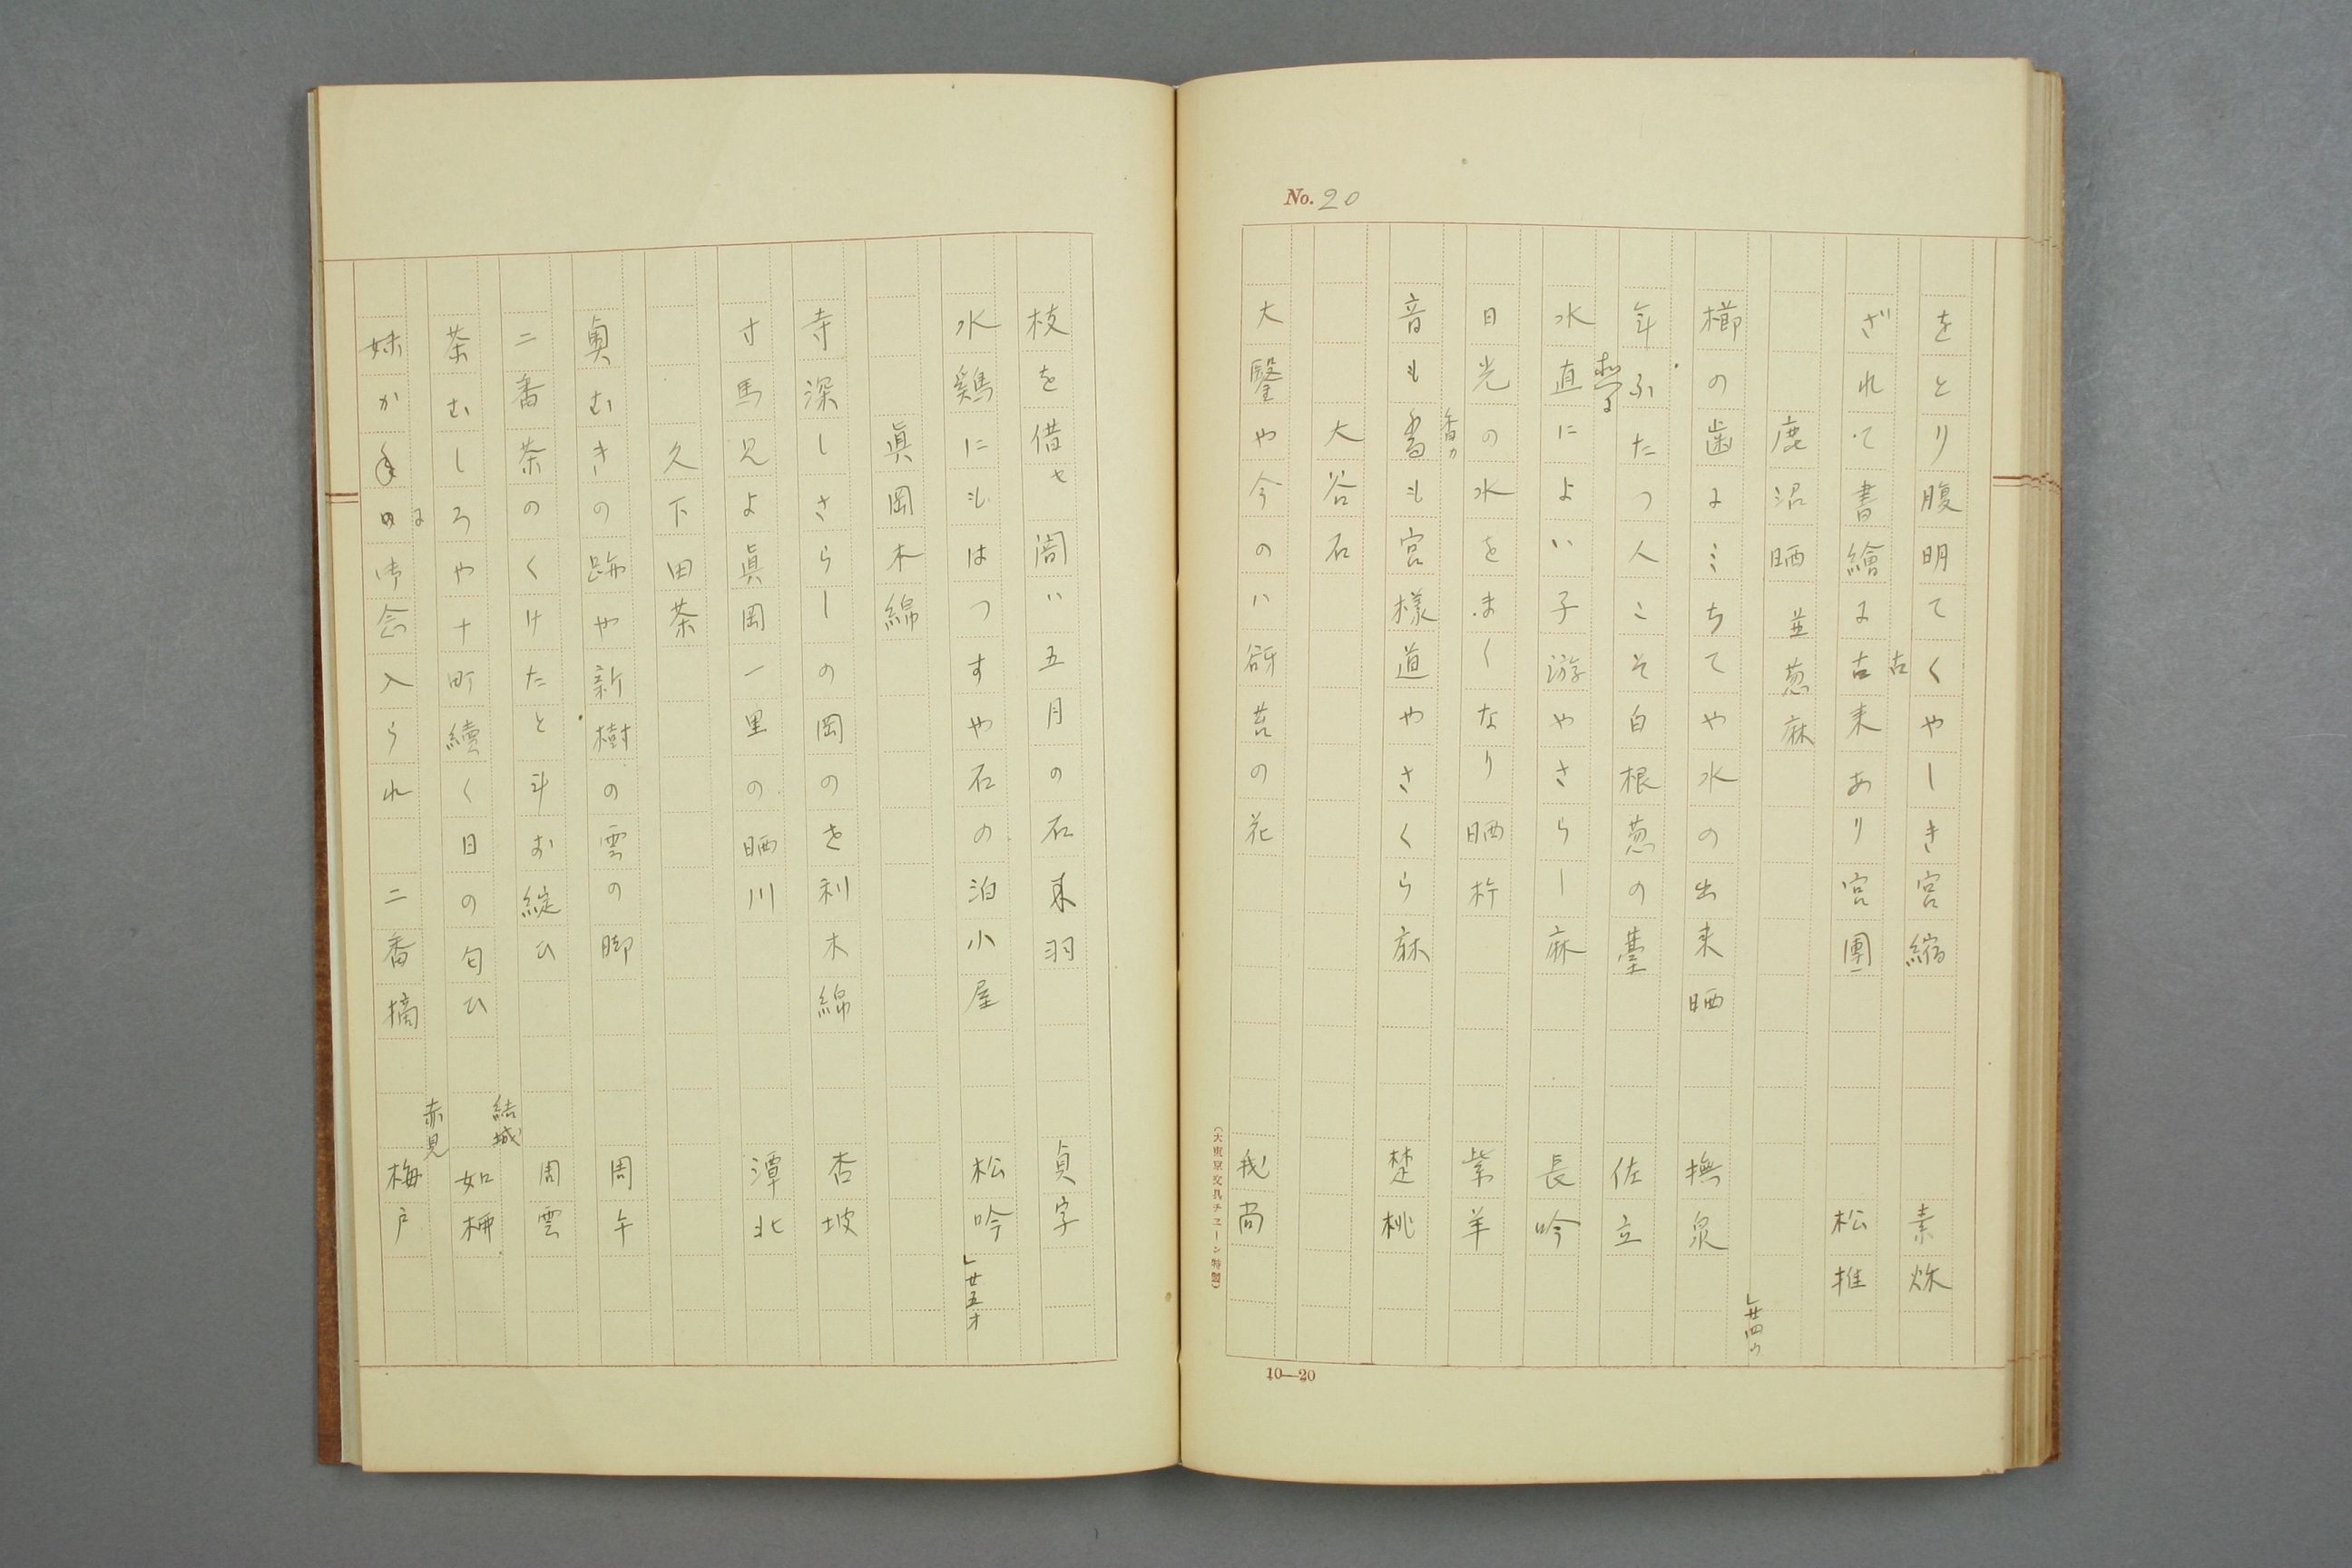 No. 20
をとり腹明てくやしき宮縮 素烌
ざれて書繪に古来あり宮團 松推
古
鹿沼晒並葱麻
櫛の歯にミちてや水の出来晒 撫泉
」廿四ウ
年ふたつ人こそ白根葱の薹 佐立
水直によい子游やさらし麻 長吟
日光の水をまくなり晒杵 紫羊
音も香も宮様道やさくら麻 楚桃
香カ
大谷石
大鑿や今のハ谺苔の花 我尚
(大東京文具チエーン特製)
10—20
枝を借や闇ハ五月の石東羽 貞字
水鷄にもはつすや石の泊小屋 松吟
」廿五オ
眞岡木綿
寺深しさらしの岡のを利木綿 杏坡
寸馬兄よ眞岡一里の晒川 潭北
久下田茶
奥むきの跡や新樹の雲の脚 周午
二番茶のくけたと斗お綻ひ 周雲
茶むしろや十町續く日の匂ひ 結城 如柵
妹か手の念入られ 二番摘 赤見 梅戸
に